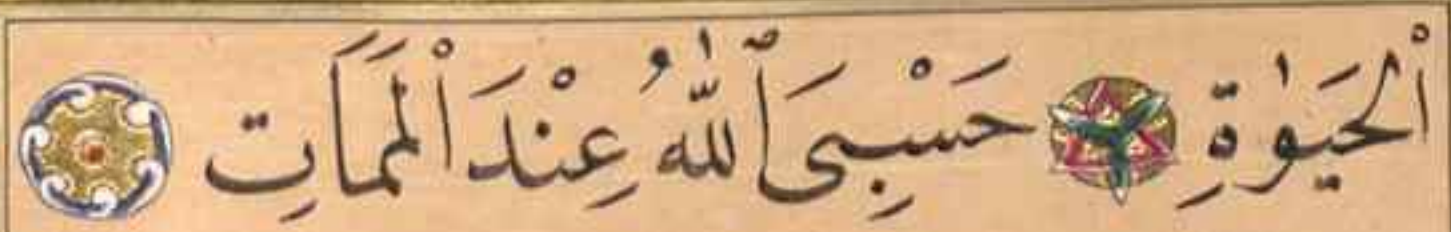 اْلحَيٰوةِ حَسْبِىَ ٱللّٰهُ عِنْدَ اْلمَمَاتِ